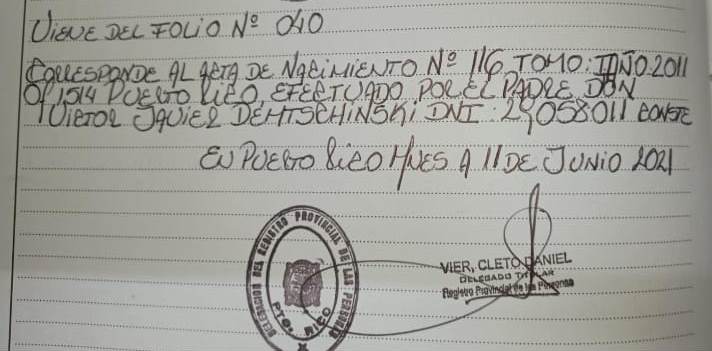 VIENE DEL FOLIO Nº 040
CORRESPONDE AL ACTA DE NACIMIENTO Nº 116 TOMO: I AÑO 2011
Of 1514 PUERTO RICO, EFECTUADO POR EL PADRE DON
VICTOR JAVIER DEMTSCHINSKI DNI: 29058011 CONSTE
EN PUERTO RICO MNES A 11 DE JUNIO 2021
DELEGACION DEL REGISTRO PROVINCIAL DE LAS PERSONAS
PTO. RICO
VIER, CLETO DANIEL
DELEGADO TITULAR
Registro Provincial de las Personas